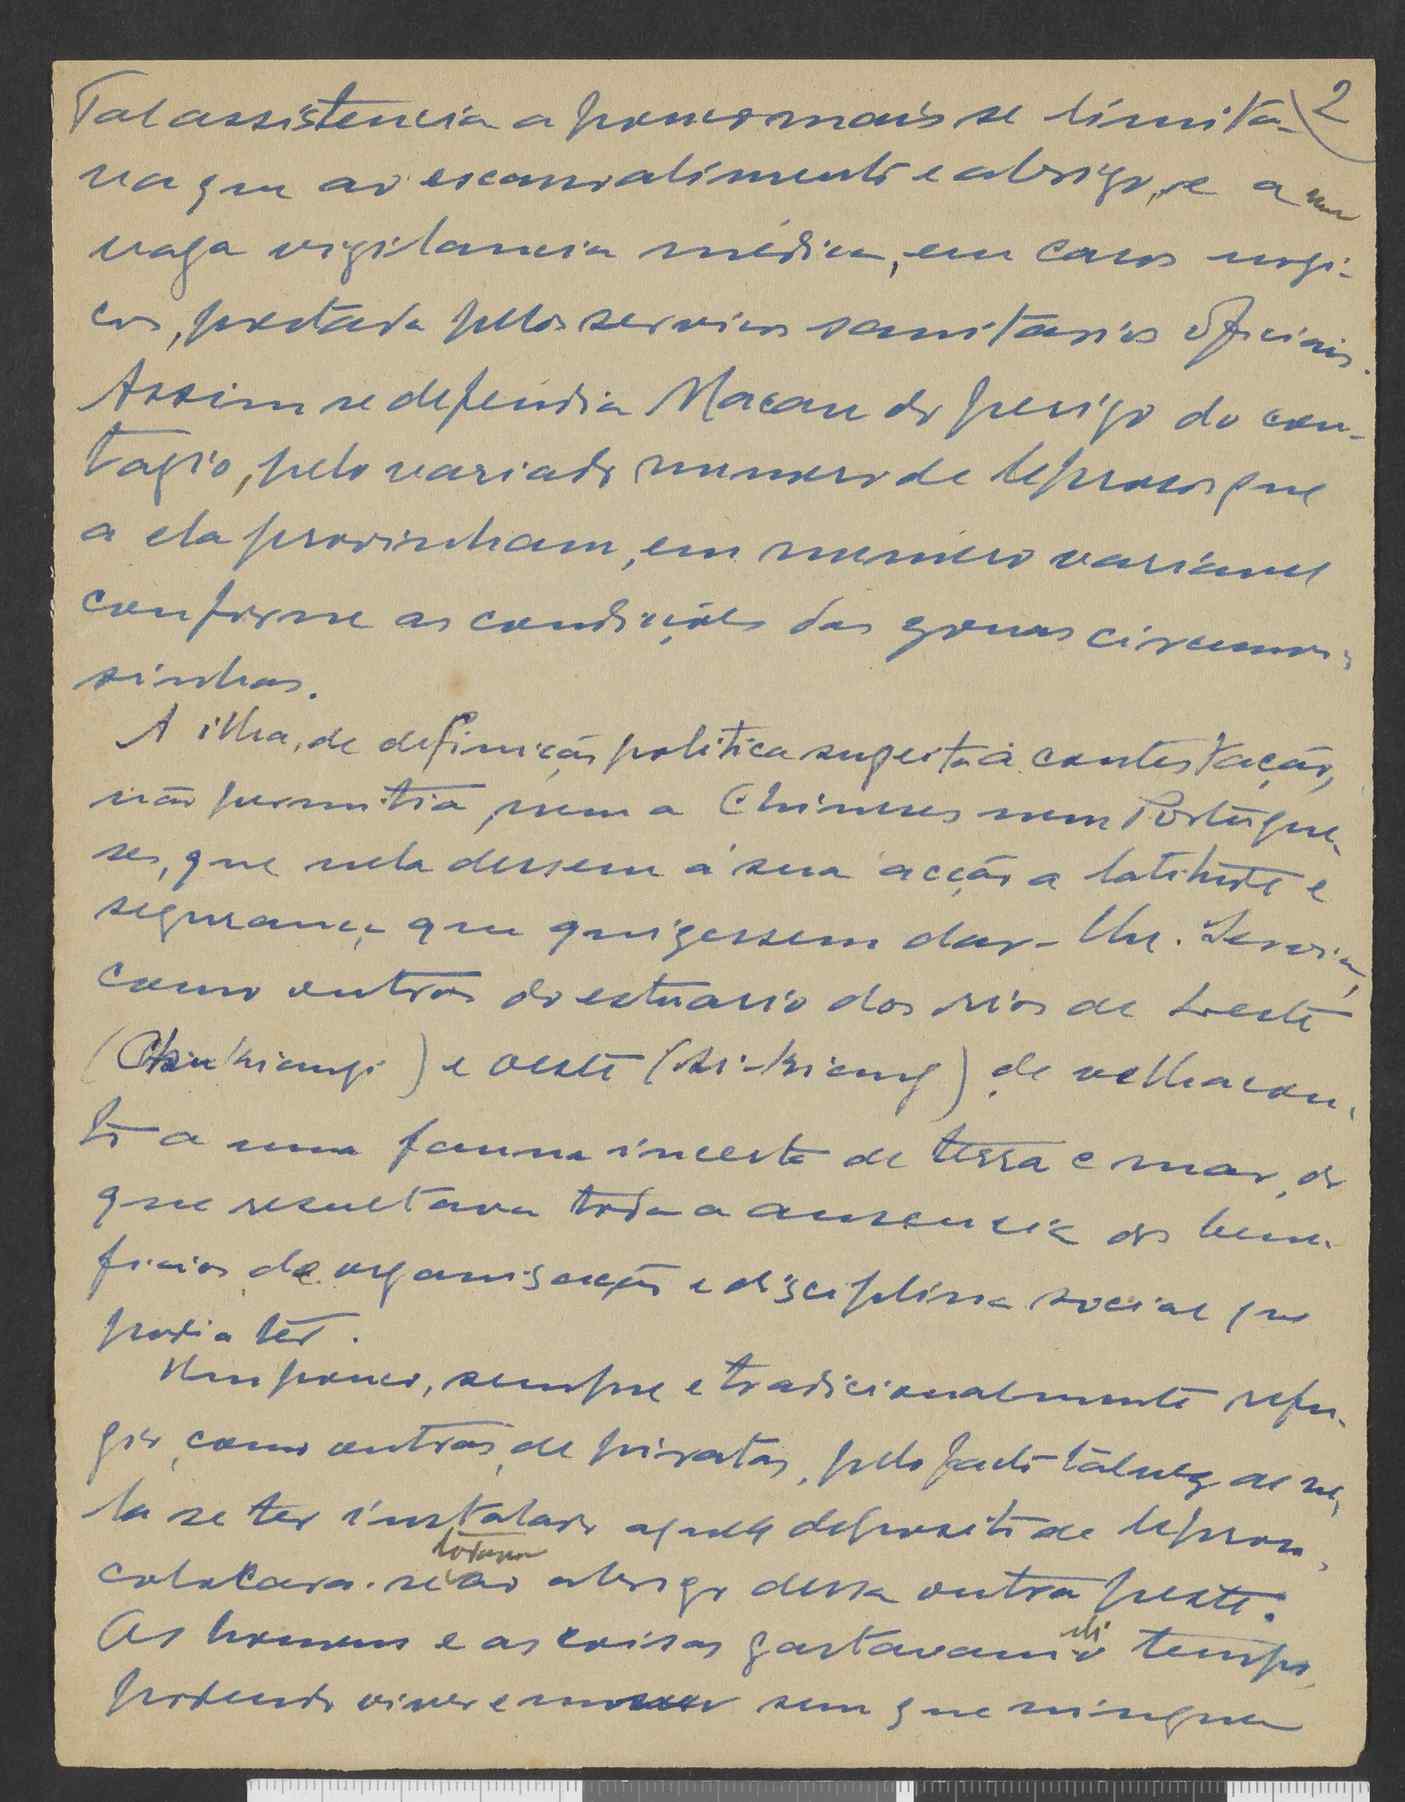 2
Tal assistencia a pouco mais se limita-
va que ao escasso alimento e abrigo, e a uma
vaga vigilancia médica, em casos urgi-
cos, prestada pelos serviços sanitarios oficiais.
Assim se defendia Macau do perigo do con-
tagio, pelo variado numero de leprosos que
a ela provinham, em numero variavel
conforme as condições das zonas circumvi-
sinhas.
A ilha, de definição politica sugeita á contestação,
não permitia, nem a Chineses nem Portugue-
ses, que nela dessem á sua acção a latitude e
segurança que quizessem dar-lhe. Servia,
como outras do estuario dos rios de Leste
(Chu kiang) e oeste (Si-kiang) de velha cou-
to a uma fauna incerta de terra e mar, do
que resultava toda a ausencia dos bene-
ficios de organisação e disciplina social que
podia ter.
Um pouco, sempre e tradicionalmente refu-
gio, como outras, de piratas, pelo facto talvez de ne-
la se ter instalado aquele deposito de leprosos,
colocara-se ao abrigo dessa outra peste.
As homens e as coisas gastavam ali o tempo,
podendo viver e morrer sem que ninguem